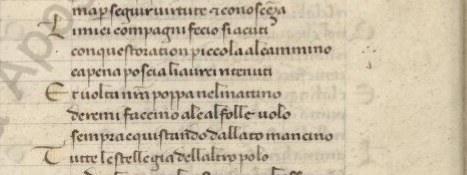 ma p seguir virtute ⁊ conoscēza
Li miei compagni fecio si acuti
con questoration piccola al cammino
ca pena poscia li aurei ritenuti
Et volta nr̃a poppa nel mattino
de remi faccino ale al folle volo
sempr acquistando dallato mancino
Tutte le stelle gia dellaltro polo